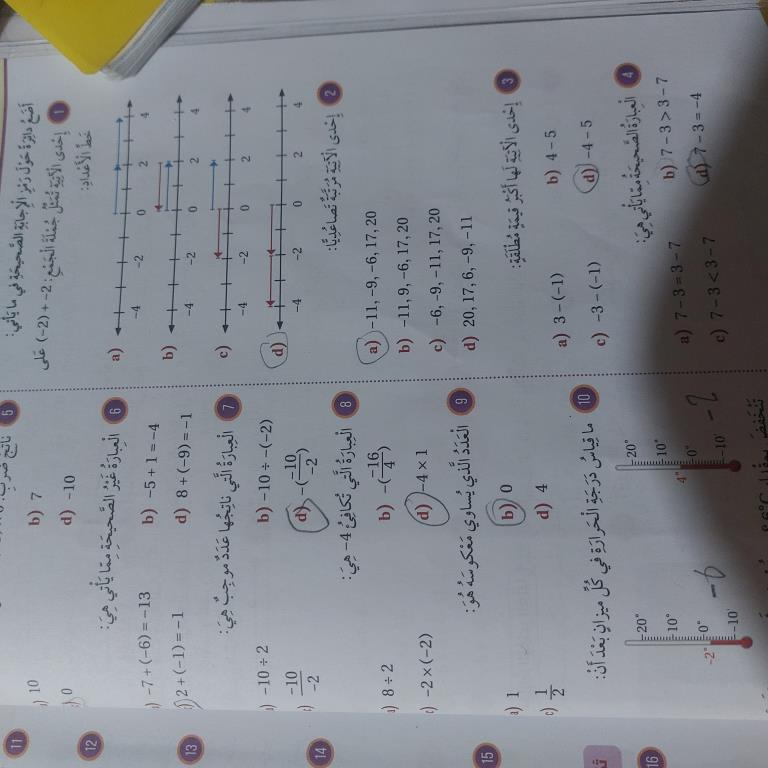 أَضَعُ دائِرَةً حَوْلَ رَمْزِ الْإِجابَةِ الصَّحيحَةِ في ما يَأْتي:
1 إِحْدى الْآتِيَةِ تُمَثِّلُ جُمْلَةَ الْجَمْعِ: (-2) + -2 عَلى
خَطِّ الْأَعْدادِ:
a) -4 -2 0 2 4
b) -4 -2 0 2 4
c) -4 -2 0 2 4
d) -4 -2 0 2 4
2 إِحْدى الْآتِيَةِ مُرَتَّبَةٌ تَصاعُدِيًّا:
a) -11, -9, -6, 17, 20
b) -11, 9, -6, 17, 20
c) -6, -9, -11, 17, 20
d) 20, 17, 6, -9, -11
3 إِحْدى الْآتِيَةِ لَها أَكْبَرُ قيمَةٍ مُطْلَقَةٍ:
a) 3 - (-1) b) 4 - 5
c) -3 - (-1) d) -4 - 5
4 الْعِبارَةُ الصَّحيحَةُ مِمّا يَأْتي هِيَ:
a) 7 - 3 = 3 - 7 b) 7 - 3 > 3 - 7
c) 7 - 3 < 3 - 7 d) 7 - 3 = -4
5 ناتِجُ ضَرْبِ
10 b) 7
0 d) -10
6 الْعِبارَةُ غَيْرُ الصَّحيحَةِ مِمّا يَأْتي هِيَ:
-7 + (-6) = -13 b) -5 + 1 = -4
2 + (-1) = -1 d) 8 + (-9) = -1
7 الْعِبارَةُ الَّتي ناتِجُها عَدَدٌ موجِبٌ هِيَ:
-10 ÷ 2 b) -10 ÷ -(-2)
-10/-2 d) -(-10/-2)
8 الْعِبارَةُ الَّتي تُكافِئُ -4 هِيَ:
8 ÷ 2 b) -(-16/4)
-2 × (-2) d) -4 × 1
9 الْعَدَدُ الَّذي يُساوي مَعْكوسَهُ هُوَ:
a) 1 b) 0
c) 1/2 d) 4
10 ما قِياسُ دَرَجَةِ الْحَرارَةِ في كُلِّ ميزانٍ بَعْدَ أَنْ:
20° 10° 0° -10° -2° -6
20° 10° 0° -10° 4° -2
11
12
13
14
15
16